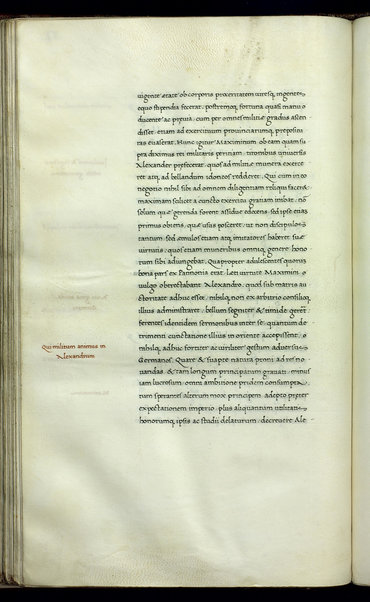 uigente etate ob corporis proceritatem uiresq, ingentes.
equo stipendia fecerat. postremoq, fortuna quasi manu o
ducente ac prouta. cum per omnes militiæ gradus ascen
disset. etiam ad exercituum prouinciarumq, præposituras
tus euaserat. Hunc igitur Maximinum ob eam quam su
pra diximus rei militaris peritiam. tironibus uniuersis
Alexander præfecerat. quos ad militiæ munera exerce
ret atq, ad bellandum idoneos redderet. Qui cum in eo
negotio nihil sibi ad omnem diligentiam reliqui faceret.
maximam scilicet a cuncto exercitu gratiam inibat. nō
solum quæ gerenda forent assidue edocens. sed ipse etiam
primus obiens. quæ usus posceret. ut non discipulos
tantum. sed æmulos etiam atq, imitatores haberet suæ
uirtutis. quos etiam muneribus omniq, genere hono
rum sibi adiungebat. Quapropter adulescentes quorum
bona pars ex Pannonia erat. Læti uirtute Maximini o
uulgo obtrectabant Alexandro. quod sub matris au
ctoritate adhuc esset. nihilq, non ex arbitrio consilioq,
illius administraret. bellum segniter & timide gereret.
ferentes identidem sermonibus inter se. quantum de
trimenti cunctatione illius in oriente accepissent. o
nihilq, adhuc fortiter ac uiriliter gestum aduersus
Germanos. Quare & suapte natura proni ad res no
uandas. & tam longum principatum grauati. minus
iam lucrosum. omni ambitione pridem consumpta.
tum sperantes alterum mox principem. adepto præter
expectationem imperio. plus aliquantum utilitatis
honorumq, ipsis ac studii delaturum. decreuere Ale
Qui militum animus in
Alexandrum